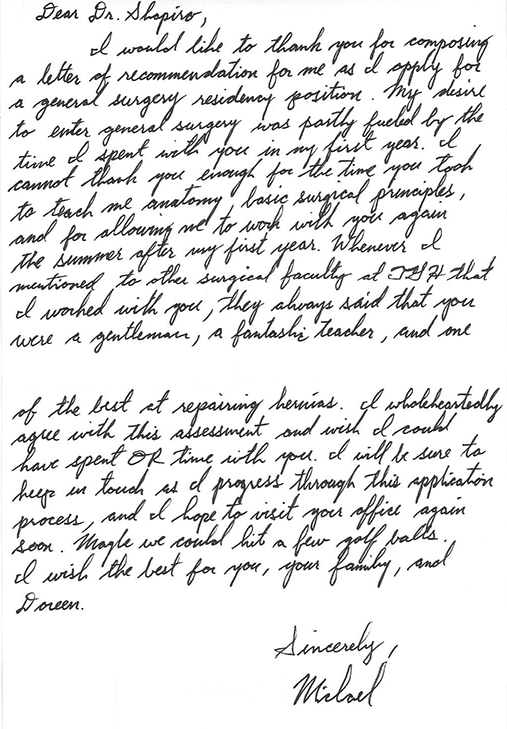 Dear Dr. Shapiro,
I would like to thank you for composing
a letter of recommendation for me as I apply for
a general surgery residency position. My desire
to enter general surgery was partly fueled by the
time I spent with you in my first year. I
cannot thank you enough for the time you took
to teach me anatomy, basic surgical principles,
and for allowing me to work with you again
the summer after my first year. Whenever I
mentioned to other surgical faculty at TGH that
I worked with you, they always said that you
were a gentleman, a fantastic teacher, and one
of the best at repairing hernias. I wholeheartedly
agree with this assessment and wish I could
have spent OR time with you. I will be sure to
keep in touch as I progress through this application
process, and I hope to visit your office again
soon. Maybe we could hit a few golf balls.
I wish the best for you, your family, and
Doreen.
Sincerely,
Michael